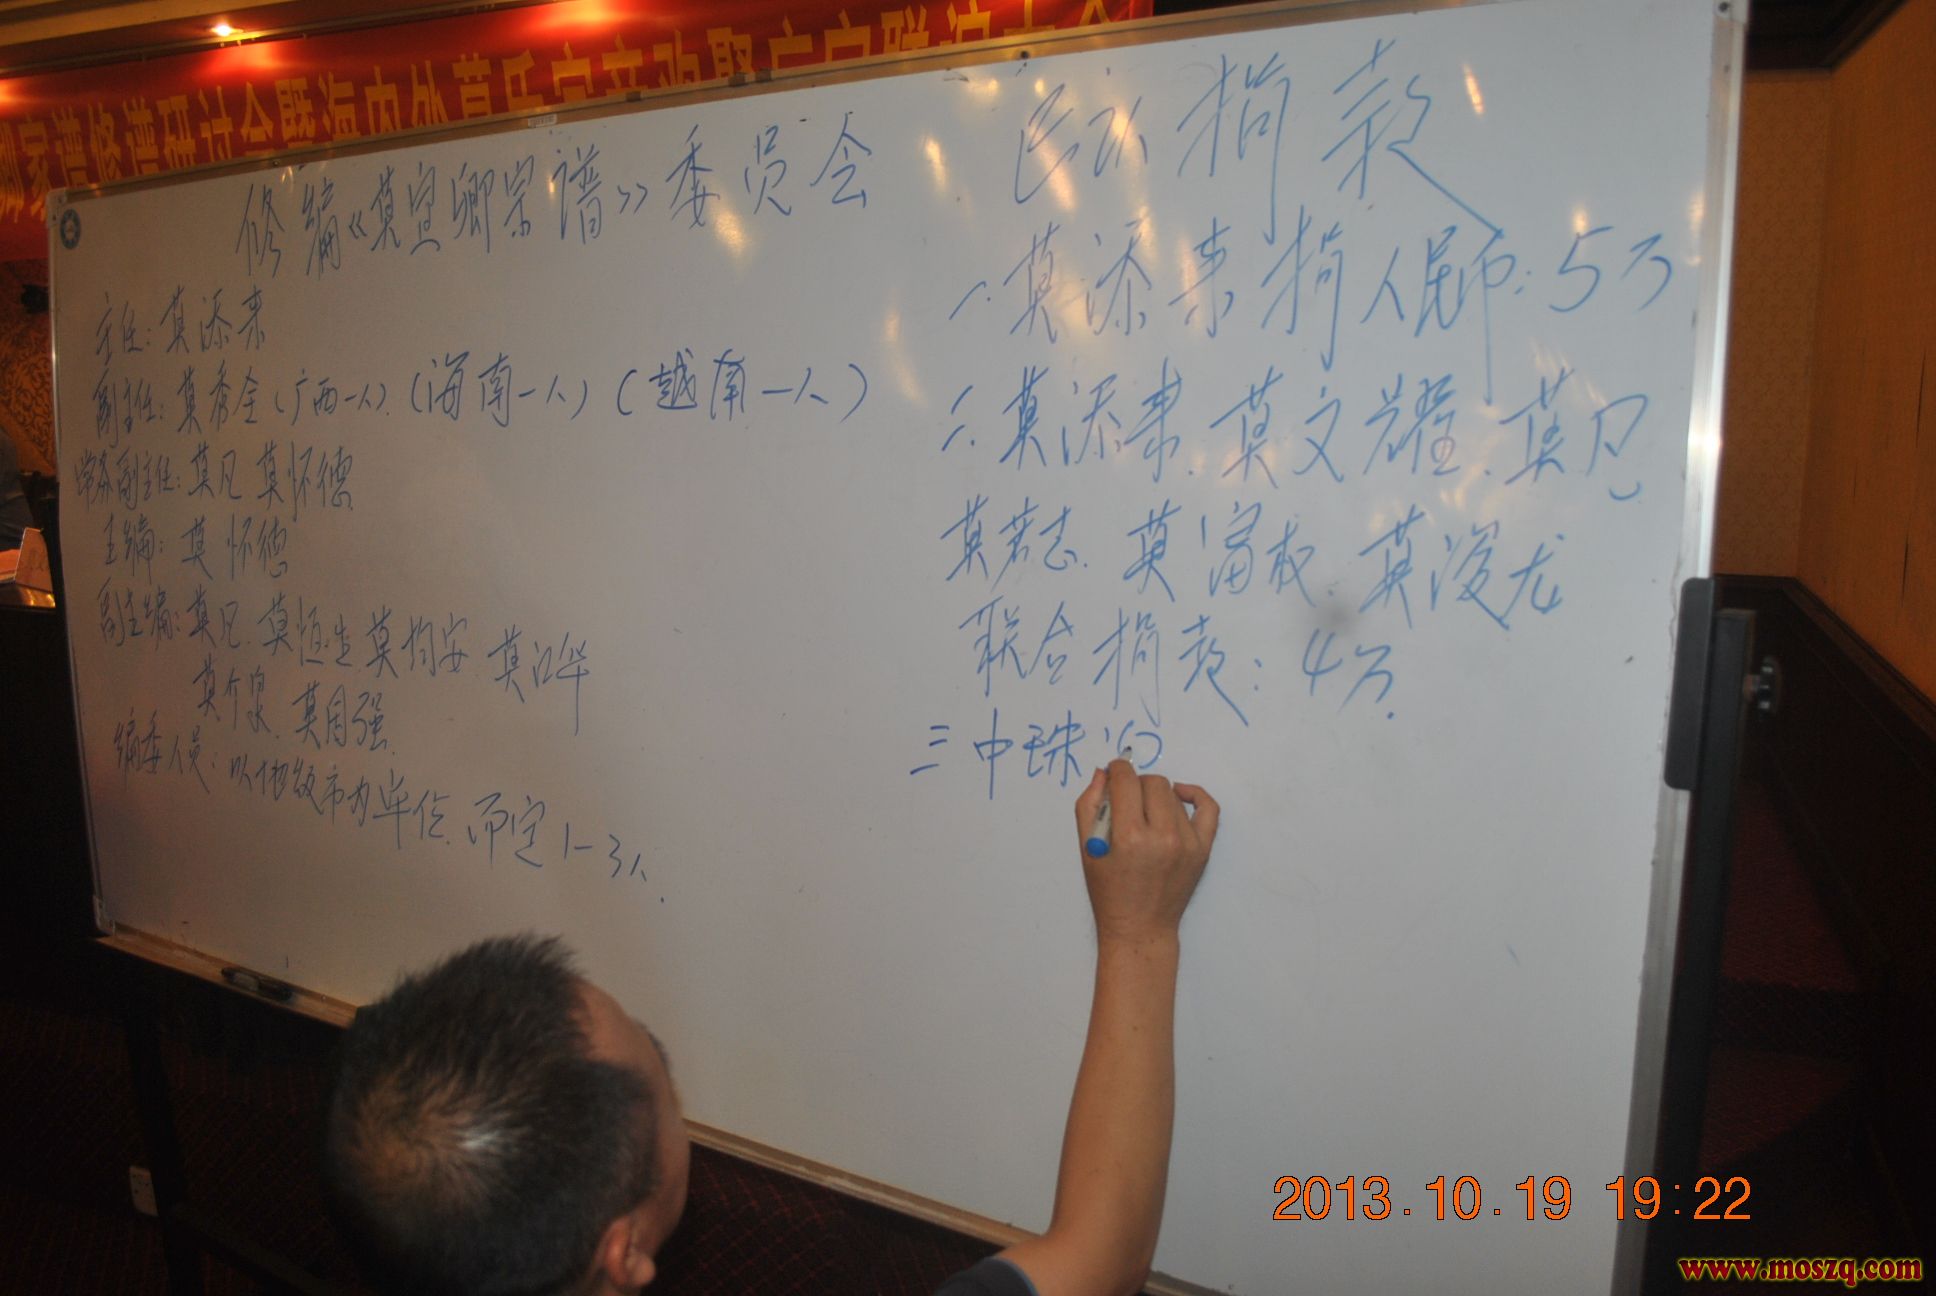 卿家谱修谱研讨会暨海内外莫氏宗亲欢聚广宁联谊大会
修编《莫宣卿宗谱》委员会
主任：莫添来
副主任：莫秀全（广西一人）（海南一人）（越南一人）
常务副主任：莫凡 莫怀德
主编：莫怀德
副主编：莫凡、莫恒生、莫均安 莫江华
莫介泉、莫周强
编委人员：以地级市为单位、而定1-3人、
已认捐款
一、莫添来捐人民币：5万
二、莫添来、莫文耀、莫凡
莫若志、莫富权、莫浚龙
联合捐款：4万、
三 中珠
2013.10.19 19:22
www.moszq.com